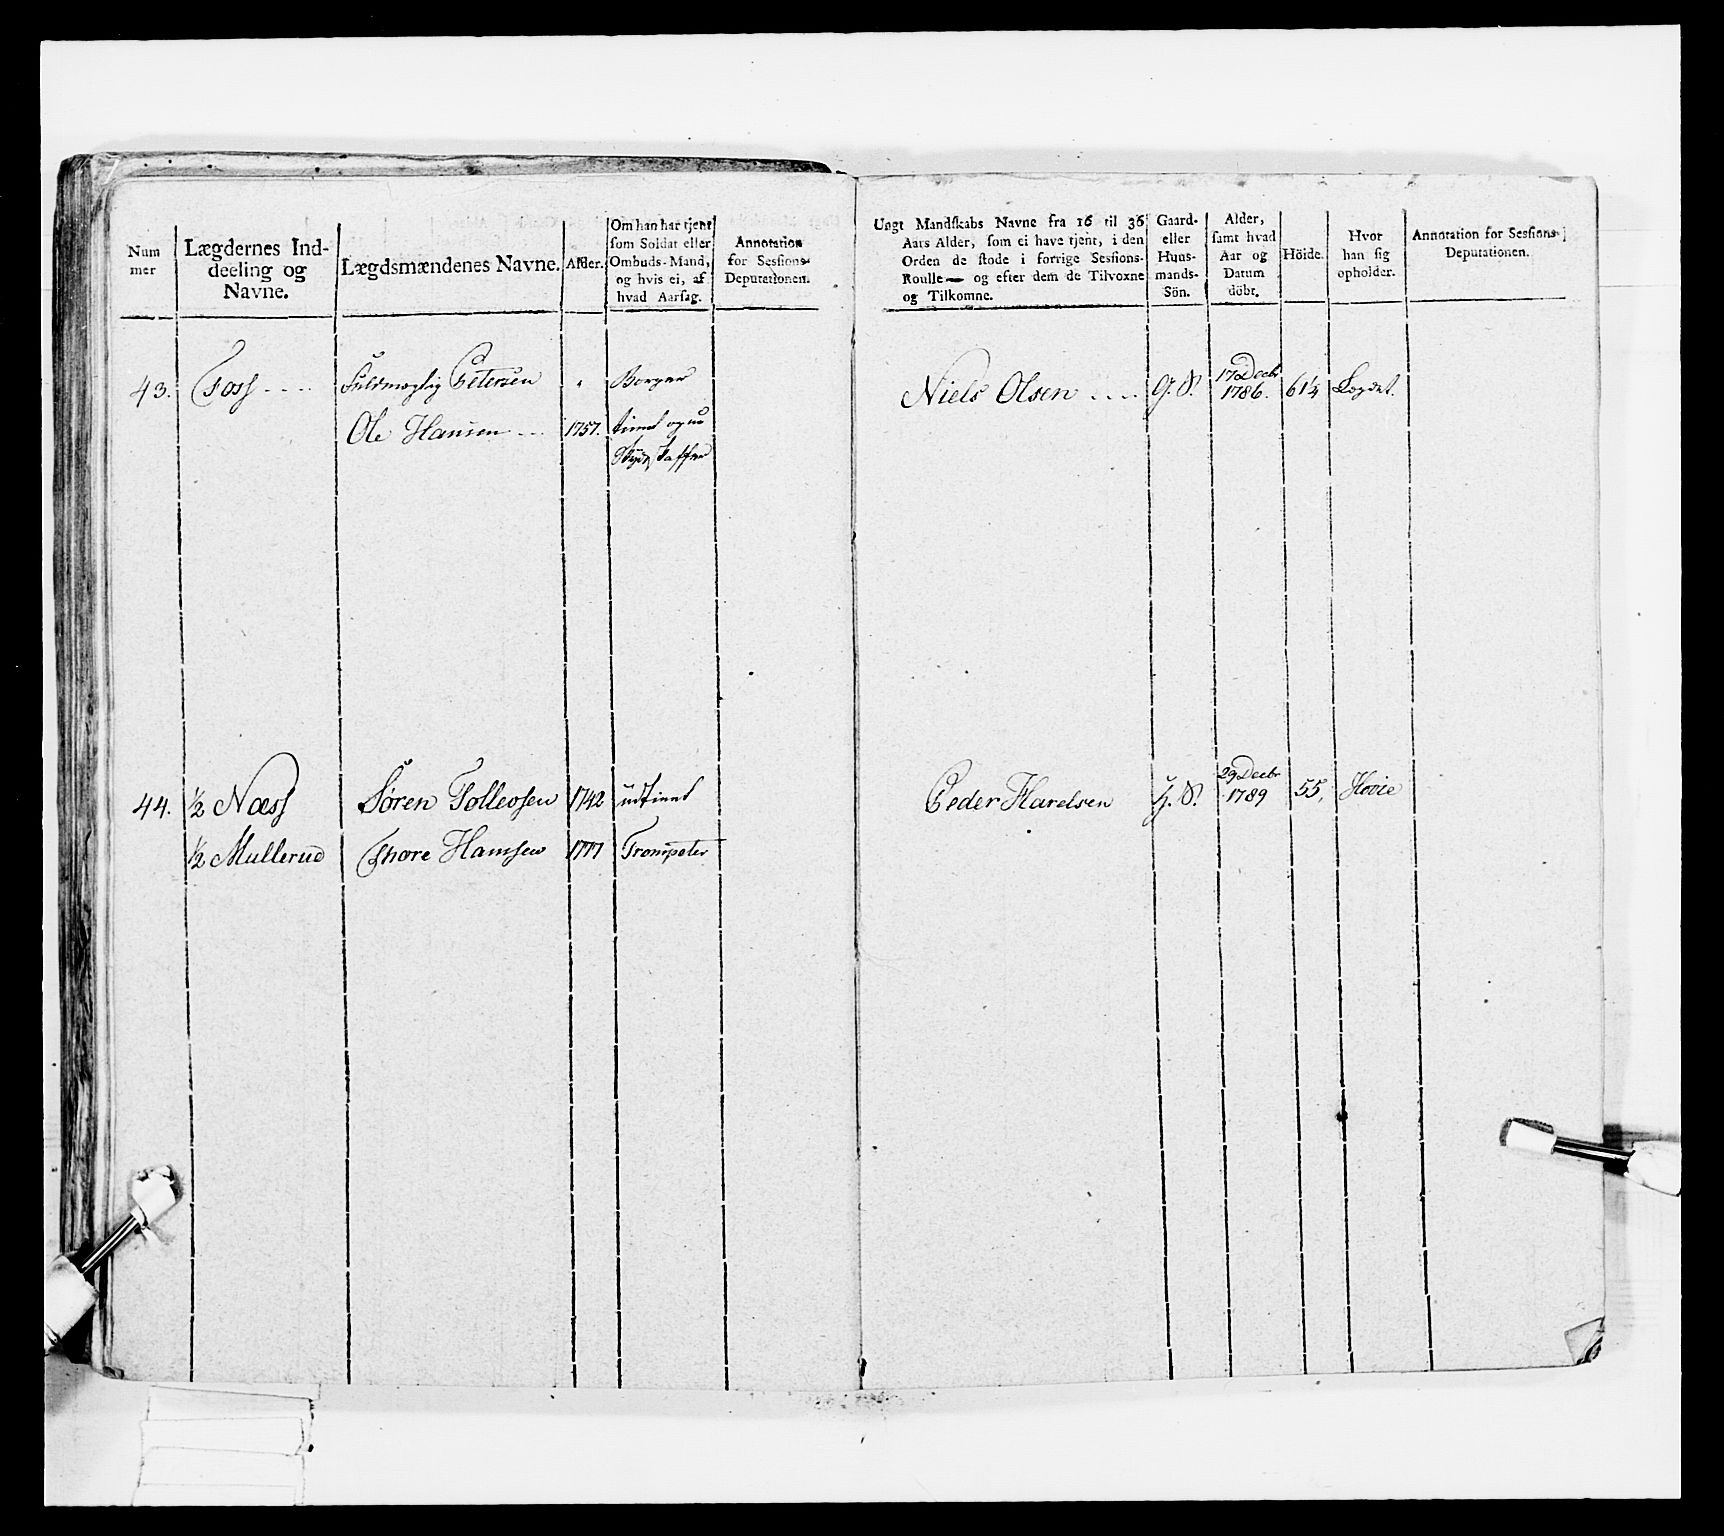 Num
mer
Lægdernes Ind-
deeling og
Navne.
Lægdsmændenes Navne.
Alder.
Om han har tjent
som Soldat eller
Ombuds-Mand,
og hvis ei, af
hvad Aarsag.
Annotation
for Sessions-
Deputationen.
Ungt Mandskabs Navne fra 16 til 36
Aars Alder, som ei have tjent, i den
Orden de stode i forrige Sessions-
Roulle — og efter dem de Tilvoxne
og Tilkomne.
Gaard-
eller
Huus-
mands-
Sön.
Alder,
samt hvad
Aar og
Datum
döbt.
Höide.
Hvor
han sig
opholder.
Annotation for Sessions-
Deputationen.
43. Foss Fuldmægtig Petersen Borger
Niels Olsen G. S. 17 Decbr 1786. 61¼ Lægdet.
Ole Hansen 1757. tient og nu
Skyds Skaffer
44. ½ Næss Søren Tollevsen 1742 udtient
Peder Harelsen H. S. 29 Decbr 1789 55, Hovie
½ Mullerud Thore Hansen 1777 Trompeter